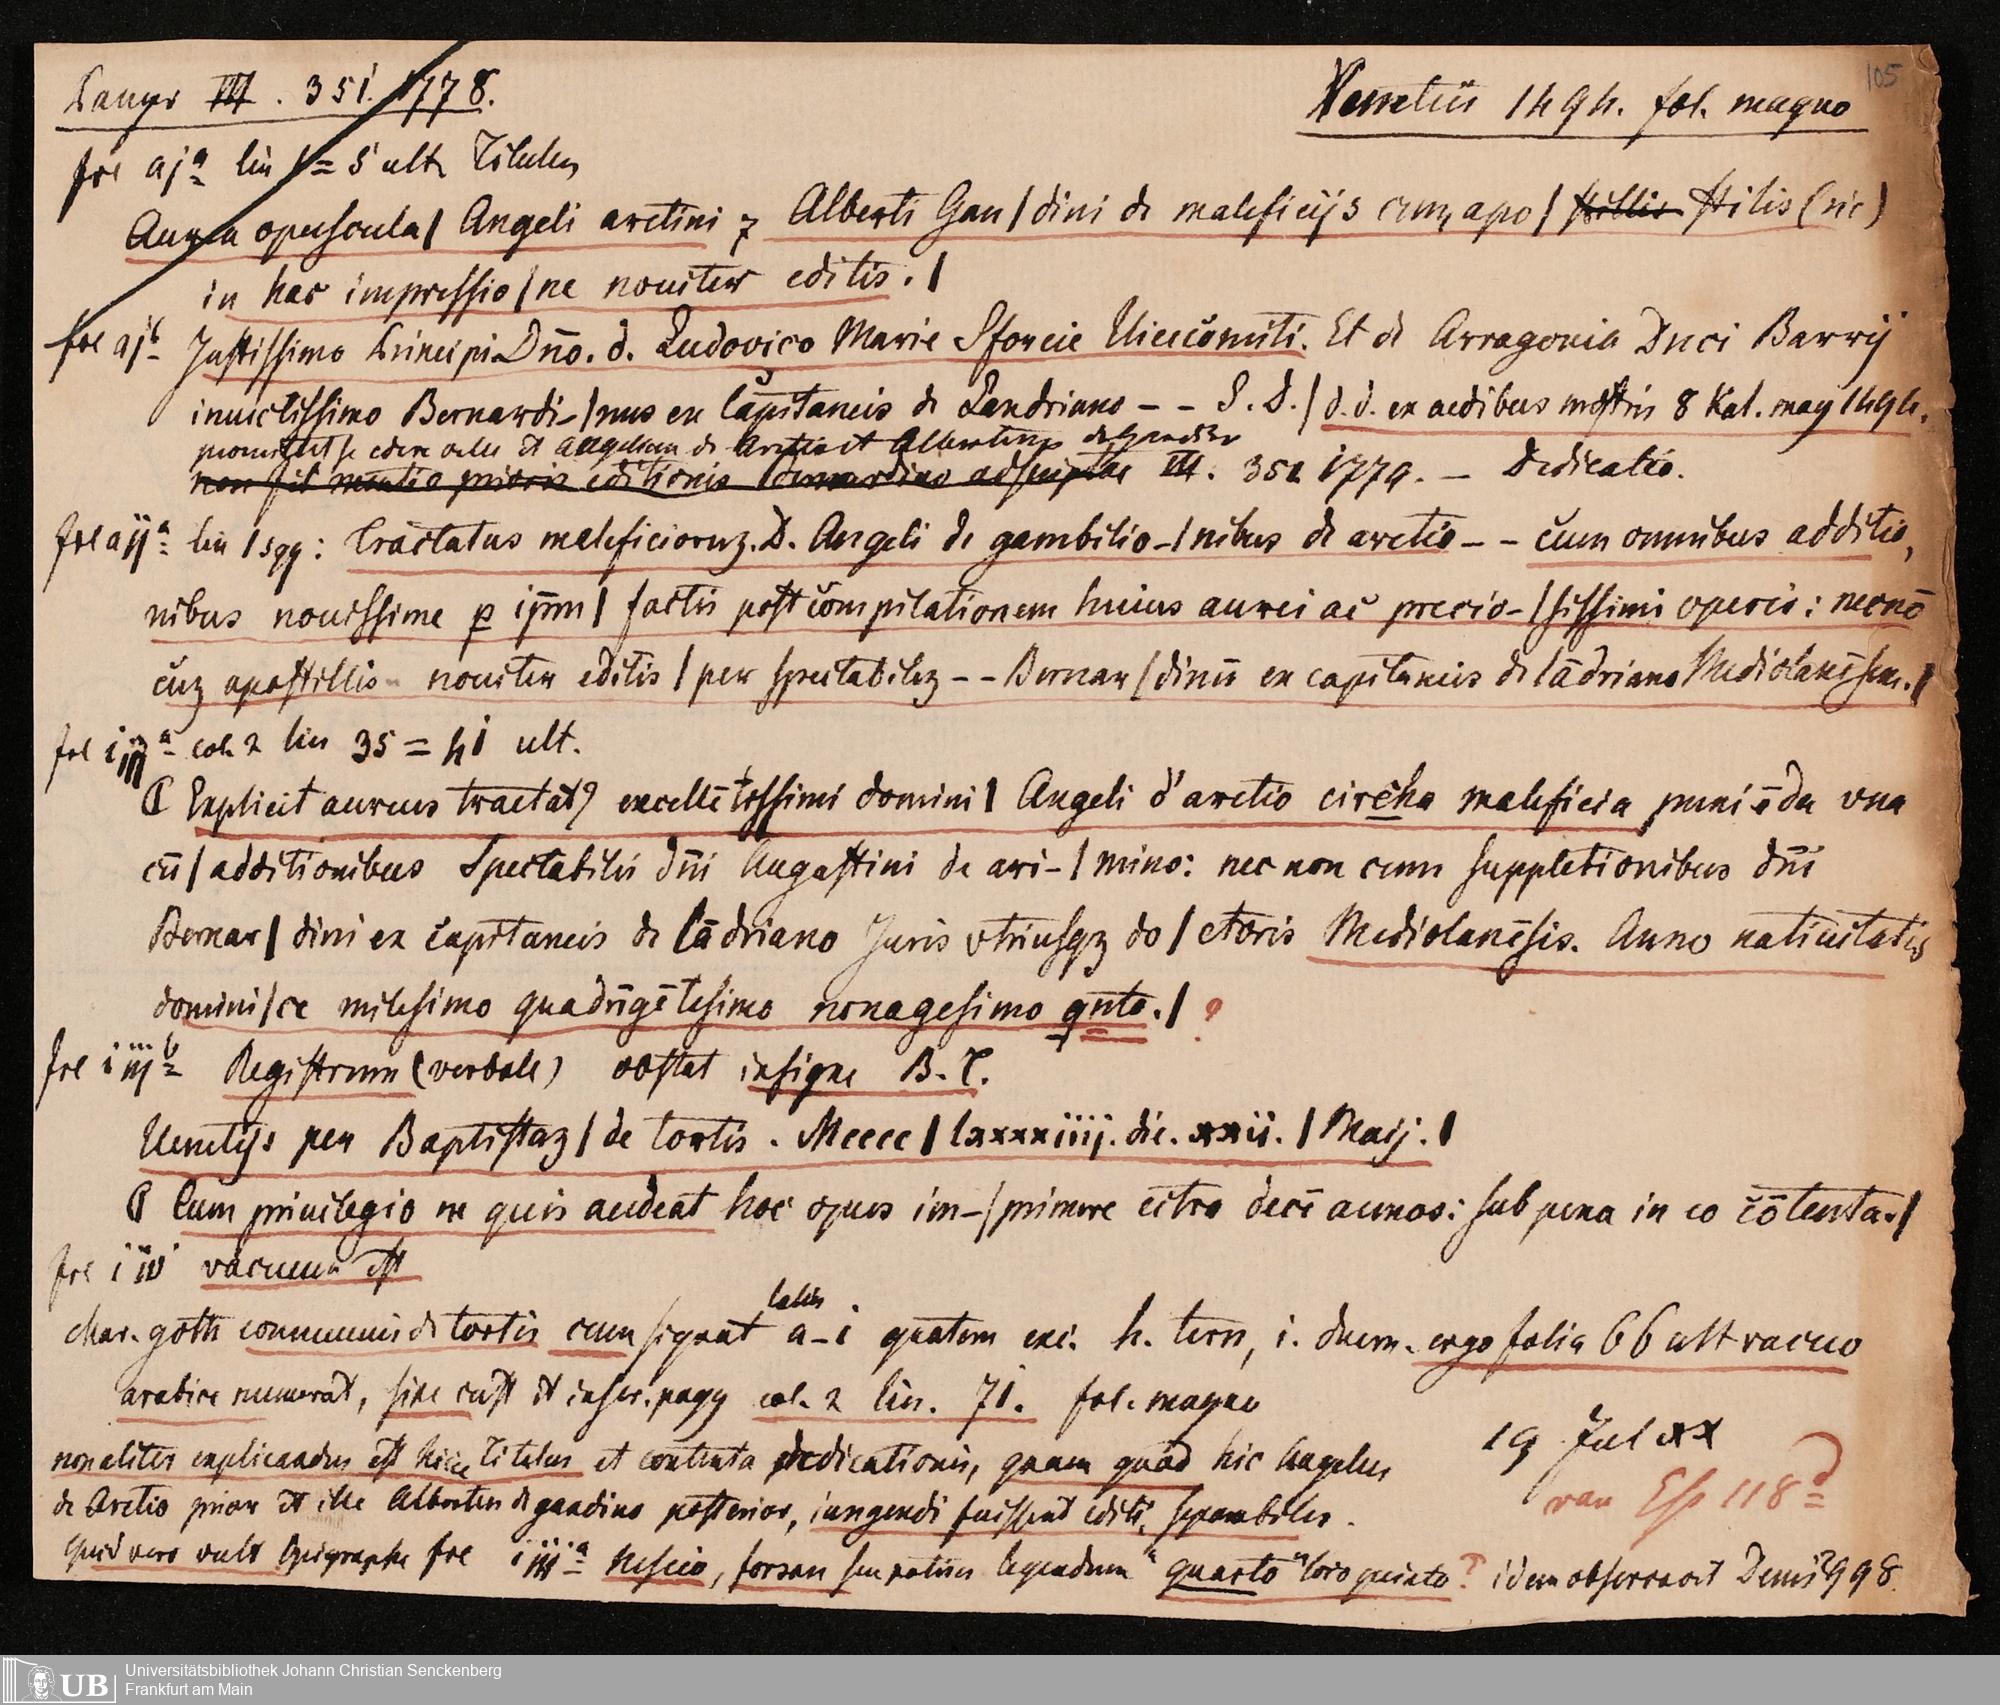 105
Panzer III. 351. 1778. Venetiis 1494. fol. magno
fol aj a lin 1=5 ult Titulus
Aurea opuscula / Angeli aretini z Alberti Gan / dini de maleficijs cum apo / stillis stilis (sic)
in hac impressio / ne nouiter editis. /
fol aj b Justissimo Principi Dn̄o. d. Ludovico Marie Sforcie Uicecōmiti. Et de Arragonia Duci Barrij
inuictissimo Bernardi- / nus ex Capitaneis de Landriano - - S. D. / d. d. ex aedibus nostris 8 Kal. may 1494.
se edere velle et Angelum de Aretio et Albertum de Gandino
non fit mentio prioris editionis III. 352 1779. - Dedicatio.
fol aij a lin 1 sqq: Tractatus maleficioruz. D. Angeli de gambilio- / nibus de aretio - - cum omnibus additio,
nibus nouissime p ip̄m / factis post compilationem huius aurei ac precio- / sissimi operis: necnō
cuz apostillis nouiter editis / per spectabilez - - Bernar / dinū ex capitaneis de lādriano Mediolanēsem. /
fol iiij a col. 2 lin 35 = 41 ult.
Explicit aureus tractat9 excellētissimi domini / Angeli d' aretio circha maleficia puniēda vna
cū / additionibus Spectabilis dn̄i Augustini de ari- / mino: nec non cum suppletionibus dn̄i
Bernar / dini ex capitaneis de lādriano Juris vtriusqz do / ctoris Mediolanēsis. Anno natiuitatis
domini / ce milesimo quadrigētesimo nonagesimo qnto. / ?
fol iiij b Registrum (verbale) obstat insigne B. T.
Uenetijs per Baptistaz / de tortis. Mcccc / lxxxxiiij. die. xxii. / Maij. /
Cum priuilegio ne quis audeat hoc opus im- / primere citra decē annos: sub pena in eo cōtenta. /
fol iiv vacuum est
char. goth communis de tortis cum signat latis a-i quatern exc. h. tern, i. duern. ergo folia 66 ult vacuo
arabice numerat, sine cust et inscr. pagg col. 2 lin. 71. fol. magno
non aliter explicandus est hicce Titulus et contenta dedicationis, quam quod hic Angelus
de Aretio prior et ille Albertus de gandino posterior, iungendi fuissent editi, separabiles.
19 Jul xx
van Esp 118 d
Quid vero vult Epigraphe fol iiij a nescio, forsan legendum "quarto" loco quinto? idem observavit Denis 2998
UB Universitätsbibliothek Johann Christian Senckenberg
Frankfurt am Main